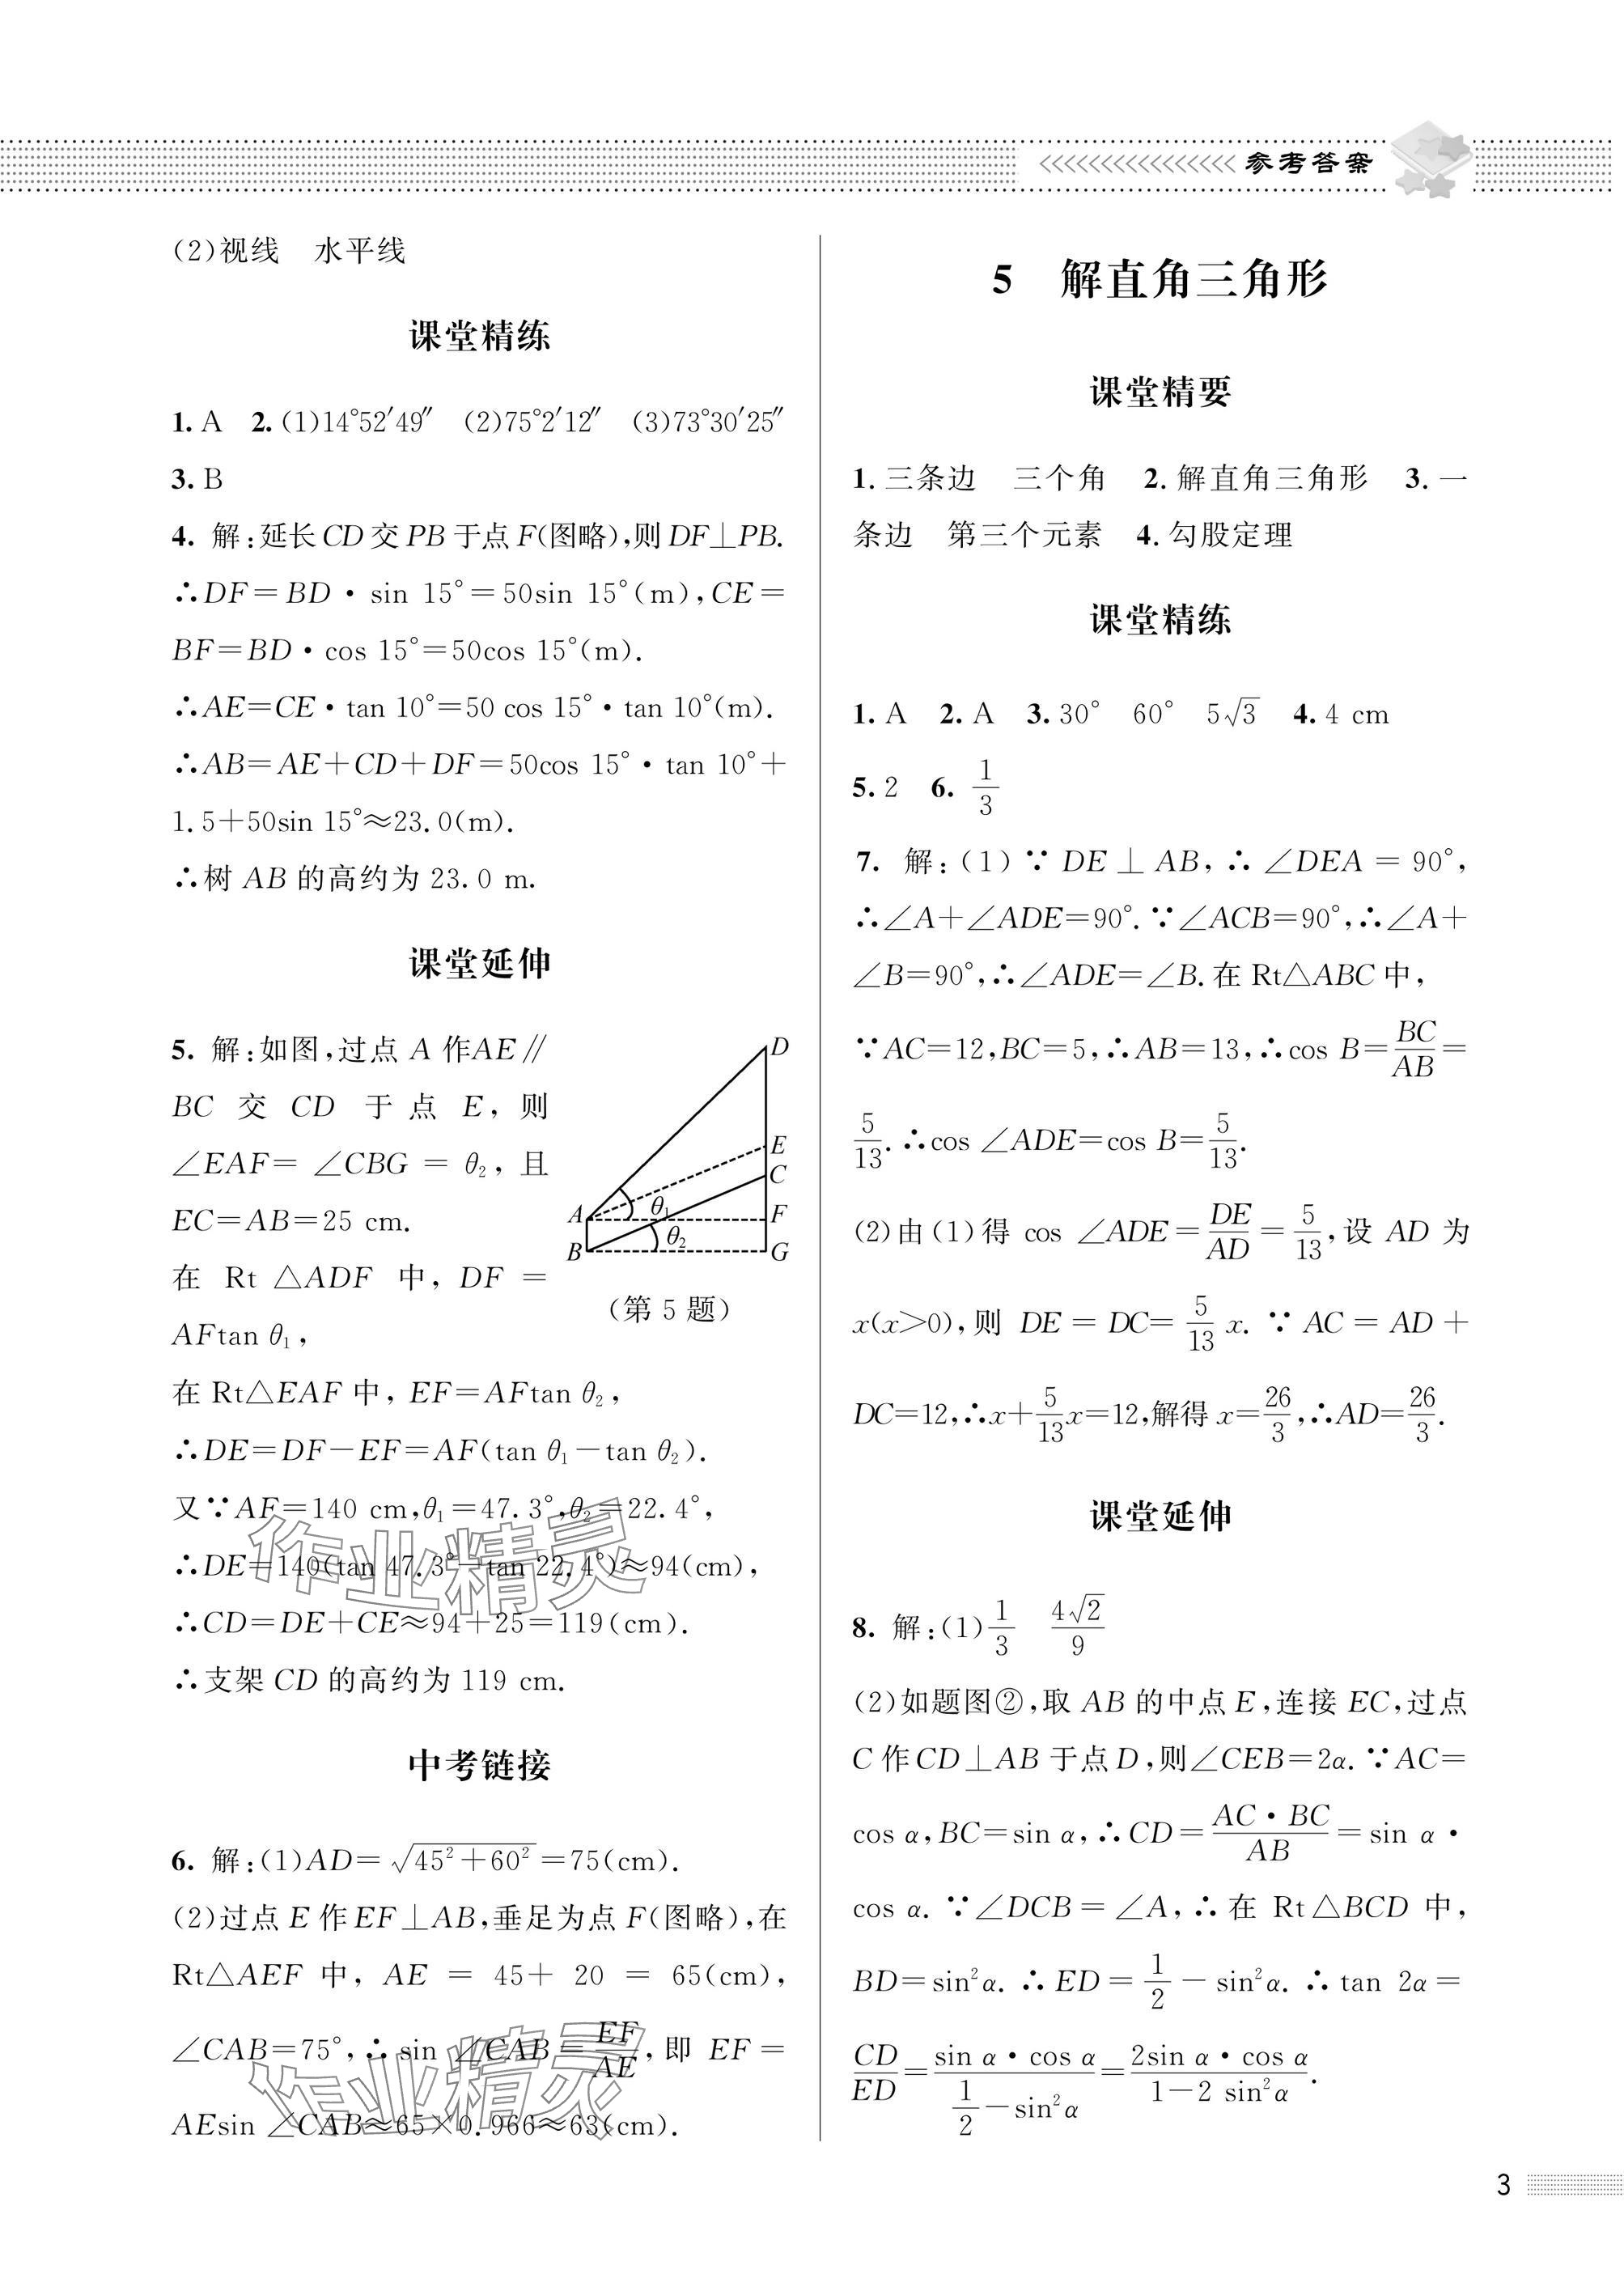 参考答案
(2)视线 水平线
课堂精练
1. A 2. (1)14°52′49″ (2)75°2′12″ (3)73°30′25″
3. B
4. 解:延长CD交PB于点F(图略),则DF⊥PB.
∴DF=BD·sin 15°=50sin 15°(m),CE=
BF=BD·cos 15°=50cos 15°(m).
∴AE=CE·tan 10°=50 cos 15°·tan 10°(m).
∴AB=AE+CD+DF=50cos 15°·tan 10°+
1.5+50sin 15°≈23.0(m).
∴树 AB 的高约为 23.0 m.
课堂延伸
5. 解:如图,过点 A 作AE∥
BC 交 CD 于点 E, 则
∠EAF=∠CBG=θ₂, 且
EC=AB=25 cm.
在 Rt△ADF 中, DF=
AFtan θ₁,
D
E
C
A
θ₁
F
B
θ₂
G
(第 5 题)
在 Rt△EAF 中, EF=AFtan θ₂,
∴DE=DF-EF=AF(tan θ₁-tan θ₂).
又∵AF=140 cm,θ₁=47.3°,θ₂=22.4°,
∴DE=140(tan 47.3°-tan 22.4°)≈94(cm),
∴CD=DE+CE≈94+25=119(cm).
∴支架 CD 的高约为 119 cm.
作业精灵
中考链接
6. 解:(1)AD=√(45²+60²)=75(cm).
(2)过点 E 作EF⊥AB,垂足为点 F(图略),在
Rt△AEF 中, AE = 45+ 20 = 65(cm),
∠CAB=75°,∴sin ∠CAB=EF/AE,即 EF=
AEsin ∠CAB≈65×0.966≈63(cm).
作业精灵
5 解直角三角形
课堂精要
1. 三条边 三个角 2. 解直角三角形 3. 一
条边 第三个元素 4. 勾股定理
课堂精练
1. A 2. A 3. 30° 60° 5√3 4. 4 cm
5. 2 6. 1/3
7. 解:(1)∵ DE ⊥ AB, ∴ ∠DEA = 90°,
∴∠A+∠ADE=90°.∵∠ACB=90°,∴∠A+
∠B=90°,∴∠ADE=∠B.在 Rt△ABC 中,
∵AC=12,BC=5,∴AB=13,∴cos B=BC/AB=
5/13.∴cos ∠ADE=cos B=5/13.
(2)由(1)得 cos ∠ADE=DE/AD=5/13,设 AD 为
x(x>0),则 DE = DC= 5/13 x. ∵ AC = AD +
DC=12,∴x+5/13x=12,解得 x=26/3,∴AD=26/3.
课堂延伸
8. 解:(1)1/3 4√2/9
(2)如题图②,取 AB 的中点 E,连接 EC,过点
C 作CD⊥AB 于点 D,则∠CEB=2α.∵AC=
cos α,BC=sin α,∴CD=AC·BC/AB=sin α·
cos α. ∵∠DCB=∠A,∴在 Rt△BCD 中,
BD=sin²α. ∴ED=1/2-sin²α. ∴tan 2α=
CD/ED=(sin α·cos α)/(1/2-sin²α)=(2sin α·cos α)/(1-2 sin²α).
3